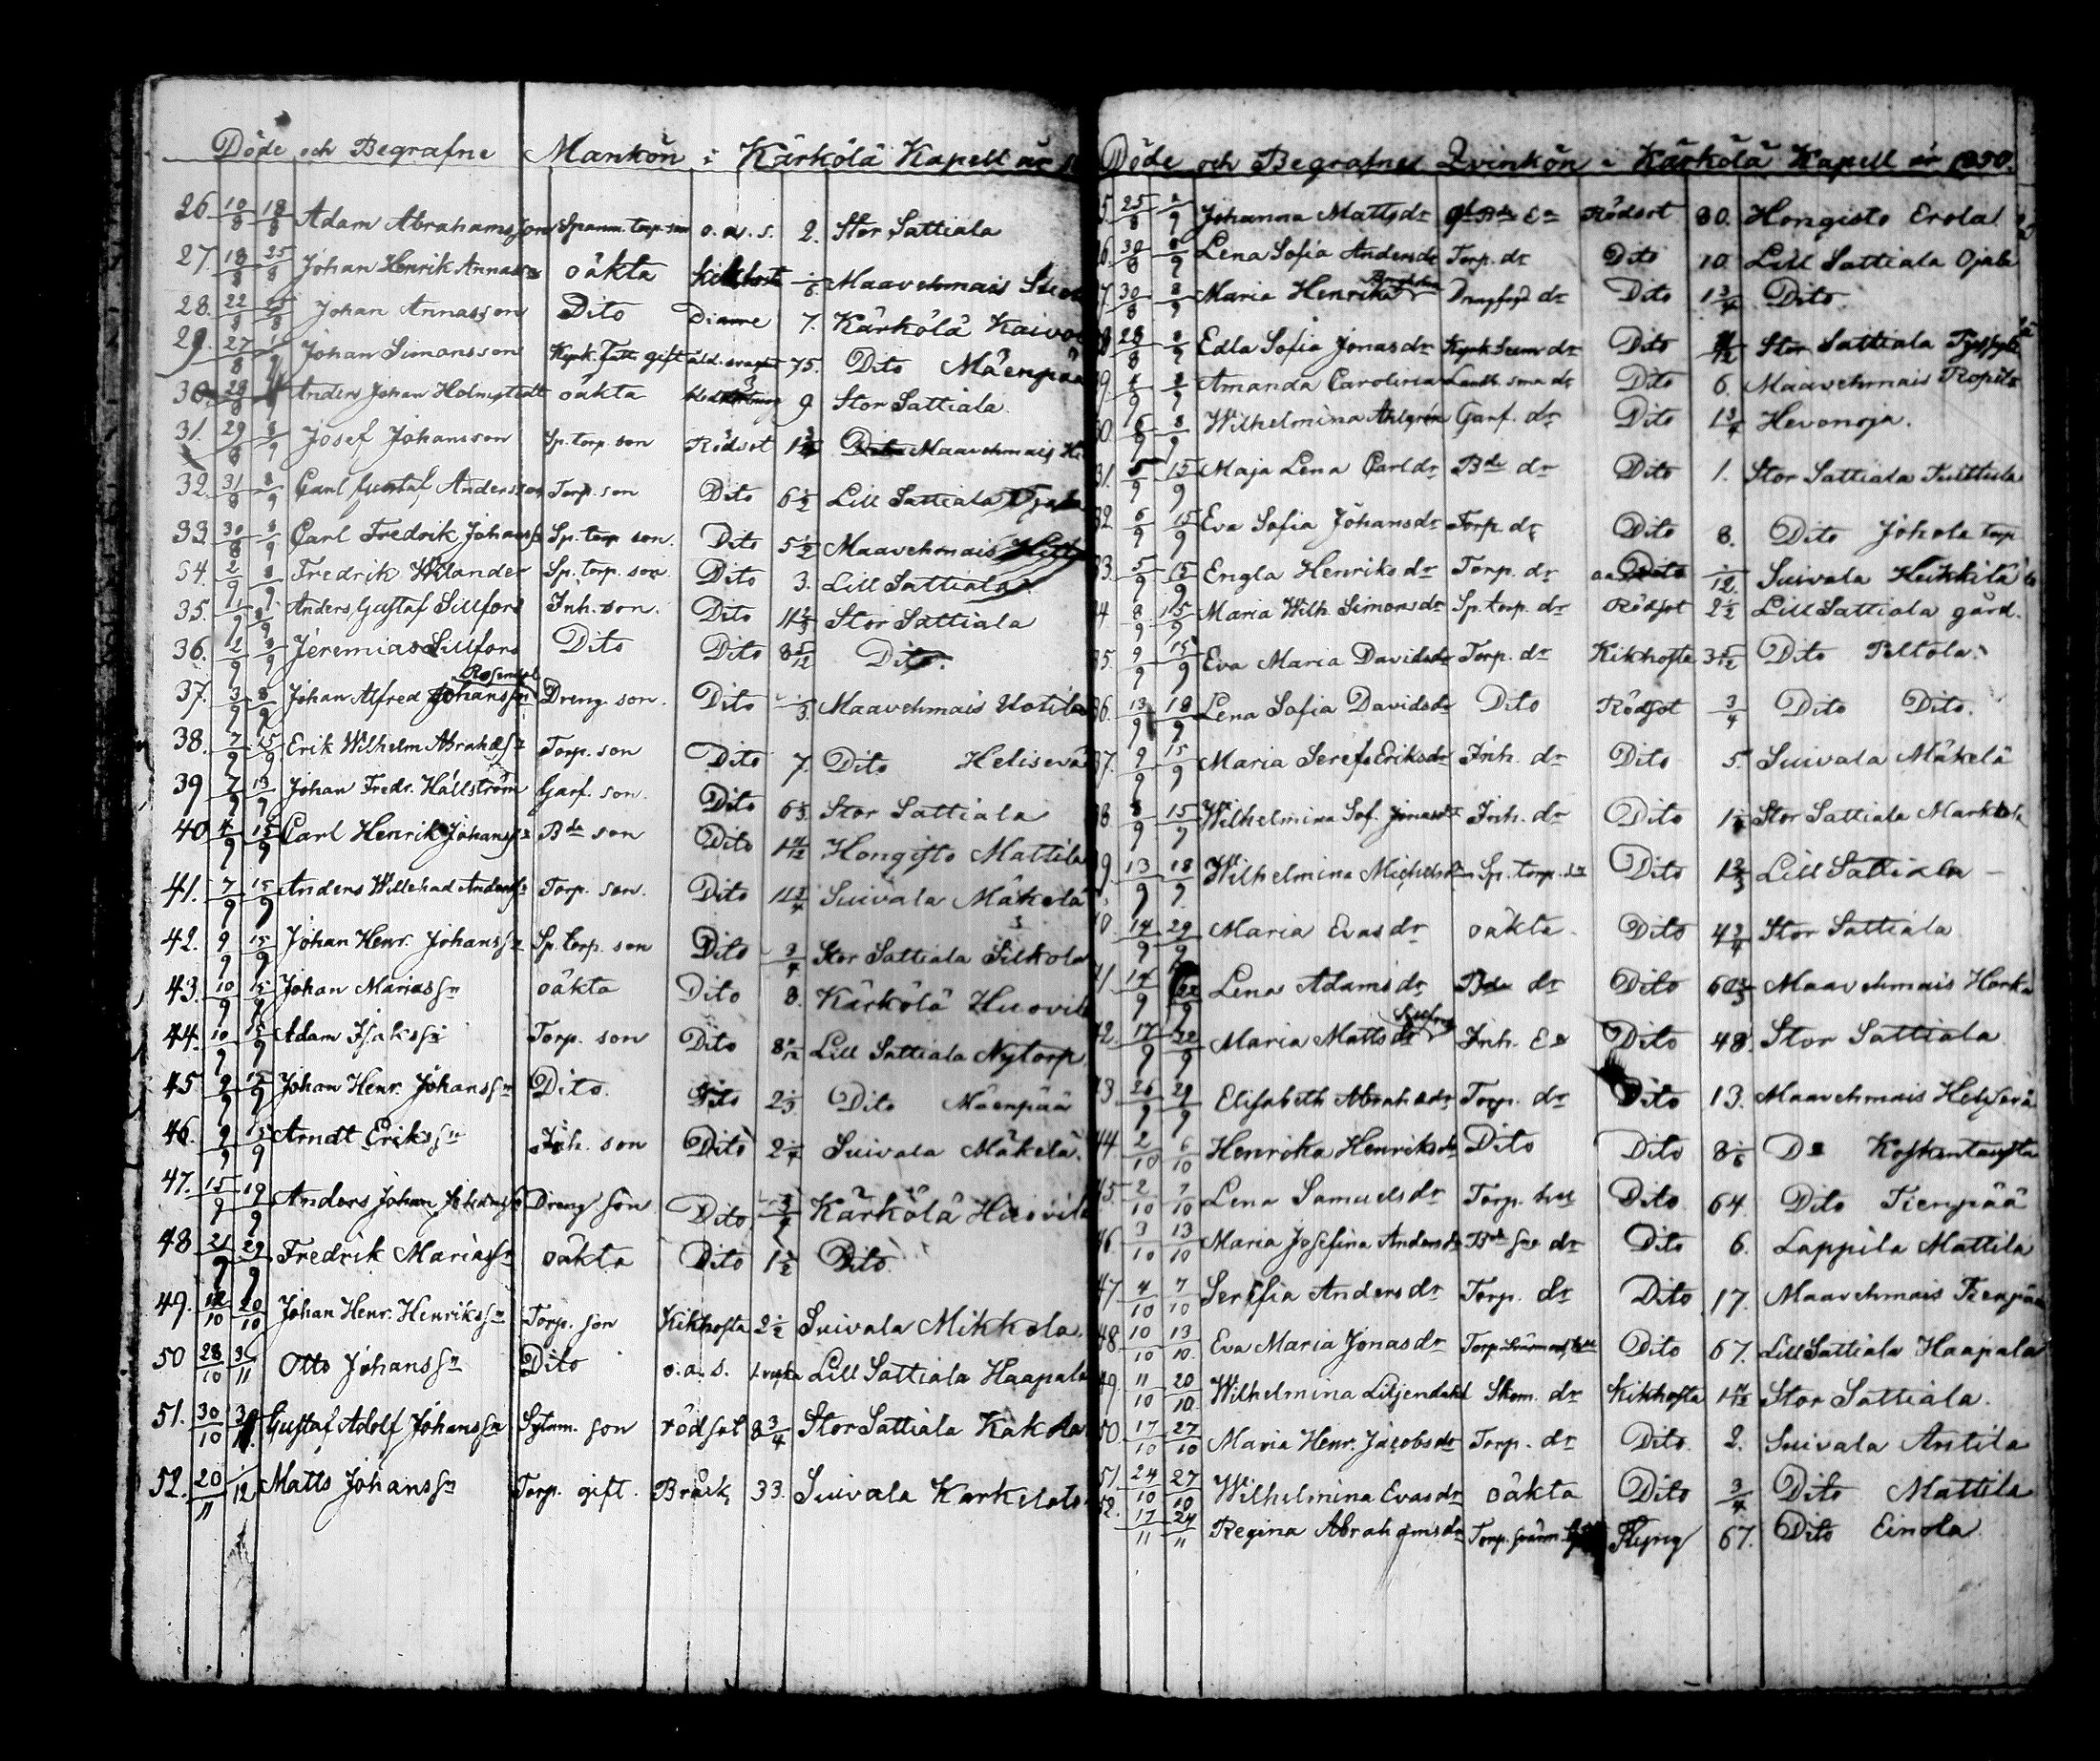 Döde och Begrafne Mankön i Kärkölä Kapell år
26. 10/8 18/8 Adam Abrahamsson Spanm. torp. son o. a. s. 2. Stor Sattiala
27. 18/8 25/8 Johan Henrik Annasson oäkta Kikhosta Maavehmais
28. 22/8 25/8 Johan Annasson Dito Diarre 7. Kärkölä Kaivo
29. 27/8 Johan Simonsson Kyrk. fatt. gift 75. Dito Mäenpää
30. 29/8 Anders Johan Holmstedt oäkta 9 Stor Sattiala
31. 29/8 8/9 Josef Johansson Sp. torp. son Rödsot Maavehmais
32. 31/8 8/9 Carl Gustaf Andersson Torp. son Dito 6 1/2 Lill Sattiala
33. 30/8 8/9 Carl Fredrik Johanss Sp. torp son. Dito 5 1/2 Maavehmais
34. 2/9 8/9 Fredrik Wilander Sp. torp. son Dito 3. Lill Sattiala
35. 1/9 8/9 Anders Gustaf Sillfors Inh. son. Dito 11 2/3 Stor Sattiala
36. 2/9 8/9 Jeremias Sillfors Dito Dito 8 5/12 Dito.
37. 3/9 8/9 Johan Alfred Johansson Dreng. son. Dito 1/3. Maavehmais Uotila
38. 7/9 15/9 Erik Wilhelm Abrahsn Torp. son Dito 7. Dito Helisevä
39 7/9 13/9 Johan Fredr. Hällström Garf. son. Dito 6 2/3. Stor Sattiala
40 15/9 Carl Henrik Johanssn Bde son Dito 1 11/12 Hongisto Mattila
41. 7/9 15/9 Anders Willehad Anderssn Torp. son. Dito 11 3/4 Suivala Mäkelä
42. 9/9 15/9 Johan Henr. Johanssn Sp. torp. son Dito 3/4 Stor Sattiala Silkola
43. 10/9 15/9 Johan Mariassn oäkta Dito 8. Kärkölä Huovila
44. 10/9 15/9 Adam Isakssn Torp. son Dito Lill Sattiala Nytorp
45 9/9 15/9 Johan Henr. Johanssn Dito. Dito 2 1/3 Dito Mäenpää
46. 9/9 15/9 Arndt Erikssn Inh. son Dito 2 1/4 Suivala Mäkelä.
47. 15/9 19/9 Anders Johan Dreng son Dito 3/4 Kärkölä Huovila
48 21/9 29/9 Fredrik Mariassn oäkta Dito 1 1/2 Dito.
49. 12/10 20/10 Johan Henr. Henrikssn Torp. son Kikhosta 2 1/2 Suivala Mikkola.
50 28/10 3/11 Otto Johanssn Dito o. a. s. 1. vecka Lill Sattiala Haapala
51. 30/10 3/11. Gustaf Adolf Johanssn Sytnm. son rödsot 8 3/4 Stor Sattiala Kakola
52. 20/11 1/12 Matts Johanssn Torp. gift. Bråck 33. Suivala
Döde och Begrafne Qvinkön i Kärkölä Kapell år 1850.
5. 25/8 2/9 Johanna Mattsdr Ea Rödsot 80. Hongisto Erola
6. 30/8 8/9 Lena Sofia Andersdr Torp. dr Dito 10 Lill Sattiala Ojala
7. 30/8 8/9 Maria Henrika dr Dito 1 3/4 Dito
8 28/8 8/9 Edla Sofia Jonasdr Kyrk dr Dito Stor Sattiala
9. 4/9 8/9 Amanda Carolina dr Dito 6. Maavehmais
30. 6/9 8/9 Wilhelmina Ahlgrén Garf. dr Dito 1 3/4 Hevonoja.
31. 5/9 15/9 Maja Lena Carldr Bde dr Dito 1. Stor Sattiala
32. 6/9 15/9 Eva Sofia Johansdr Torp. dr Dito 8. Dito Jokela torp
33. 5/9 15/9 Engla Henriksdr Torp. dr 1/12. Suivala Heikkilä
34 8/9 15/9 Maria Wilh. Simonsdr Sp. torp. dr Rödsot 2 1/2 Lill Sattiala gård.
35. 9/9 15/9 Eva Maria Davidsdr Torp. dr Kikhosta 3 5/12 Dito Peltola.
36. 13/9 18/9 Lena Sofia Davidsdr Dito Rödsot 3/4 Dito Dito.
37. 9/9 15/9 Maria Serefa Eriksdr Inh. dr Dito 5. Suivala Mäkelä
38. 8/9 15/9 Wilhelmina Sof. Jonasdr Inh. dr Dito Stor Sattiala
39 13/9 18/9 Wilhelmina Michelsdr Sp. torp. dr Dito 1 2/3 Lill Sattiala
40. 14/9 29/9 Maria Evasdr oäkta. Dito 4 3/4 Stor Sattiala
41. 14/9 22/9 Lena Adamsdr Bde dr Dito 60 2/3 Maavehmais
42. 17/9 22/9 Maria Mattsdr Inh. Ea Dito 48. Stor Sattiala
43. 26/9 29/9 Elisabeth Abrahsdr Torp. dr Dito 13. Maavehmais Helisevä
44. 2/10 6/10 Henrika Henriksdr Dito Dito 8 1/6 Do
45. 2/10 7/10 Lena Samuelsdr Torp. hu Dito 64. Dito Tienpää
46 3/10 13/10 Maria Josefina Andersdr Bde dr Dito 6. Lappila Mattila
47. 4/10 7/10 Serefia Andersdr Torp. dr Dito 17. Maavehmais Tienpää
48. 10/10 13/10. Eva Maria Jonasdr Torp. Dito 67. Lill Sattiala Haapala
49. 11/10 20/10. Wilhelmina Liljendahl Skom. dr Kikhosta 1 11/12 Stor Sattiala.
50. 17/10 27/10 Maria Henr. Jacobsdr Torp. dr Dito. 2. Suivala Antila
51. 24/10 27/10 Wilhelmina Evasdr oäkta Dito 3/4 Dito Mattila
52. 17/11 24/11 Regina Abrahamsdr Torp. 67. Dito Einola